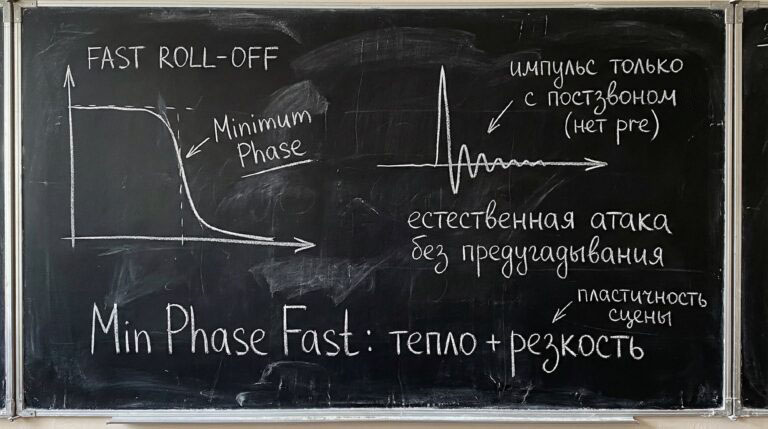 FAST ROLL-OFF
Minimum
Phase
импульс только
с постзвоном
(нет pre)
естественная атака
без предугадывания
пластичность
сцены
Min Phase Fast: тепло + резкость